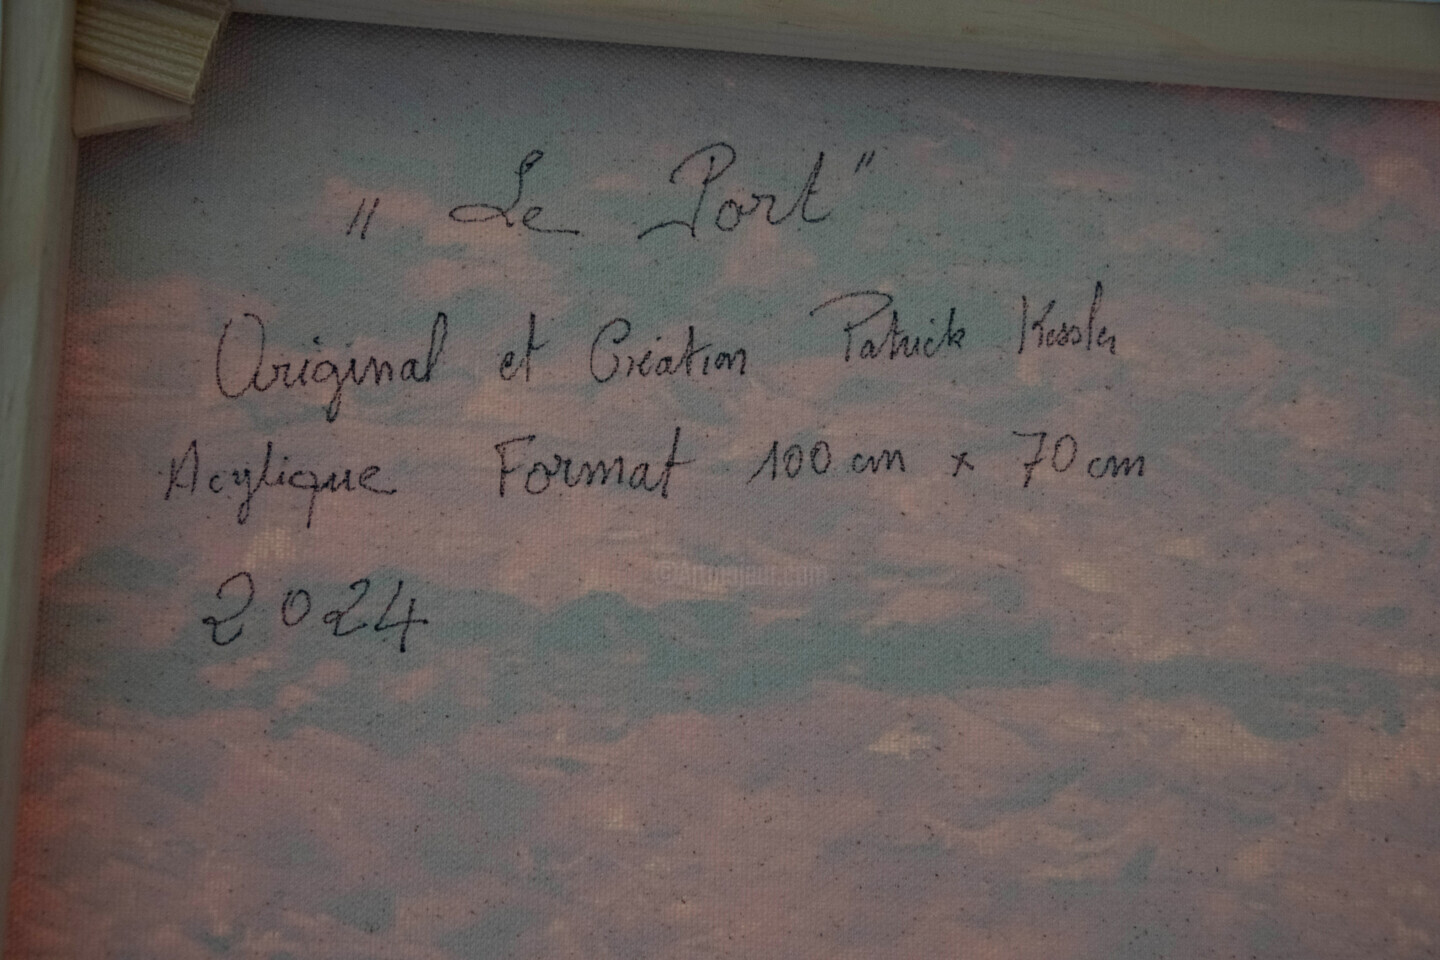 " Le Port "
Original et Création Patrick Kessler
Acylique Format 100 cm x 70 cm
©Artmajeur.com
2024